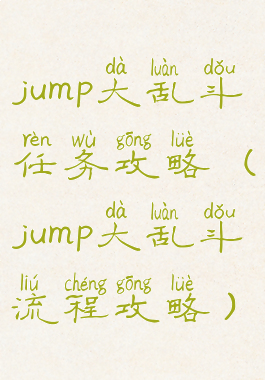 dà luàn dǒu
jump大乱斗
rèn wù gōng lüè
任务攻略（
dà luàn dǒu
jump大乱斗
liú chéng gōng lüè
流程攻略）